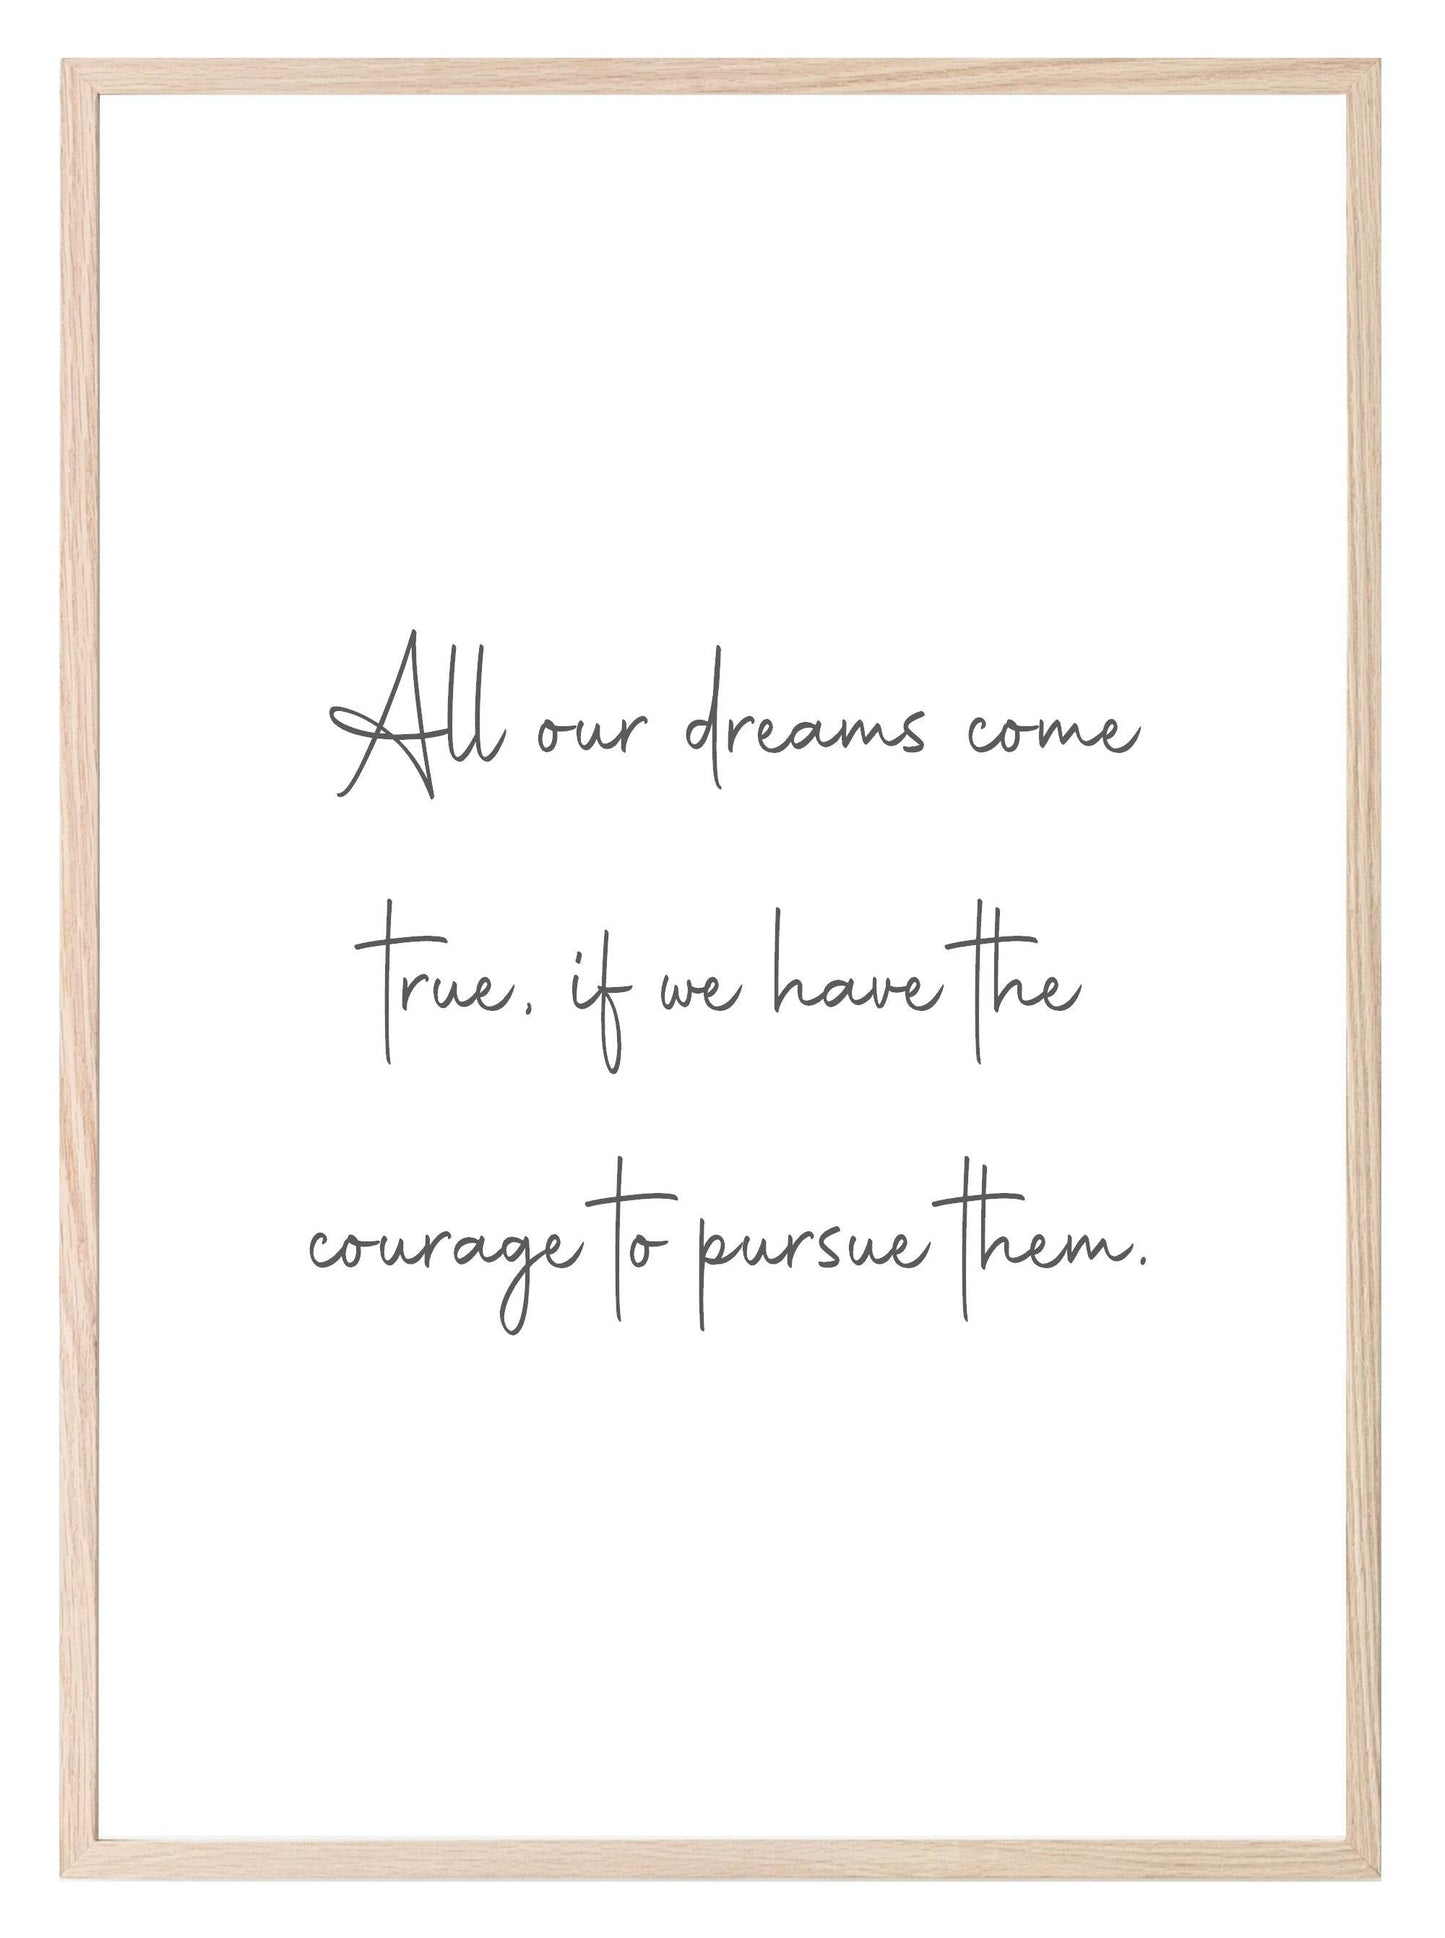 All our dreams come
true, if we have the
courage to pursue them.